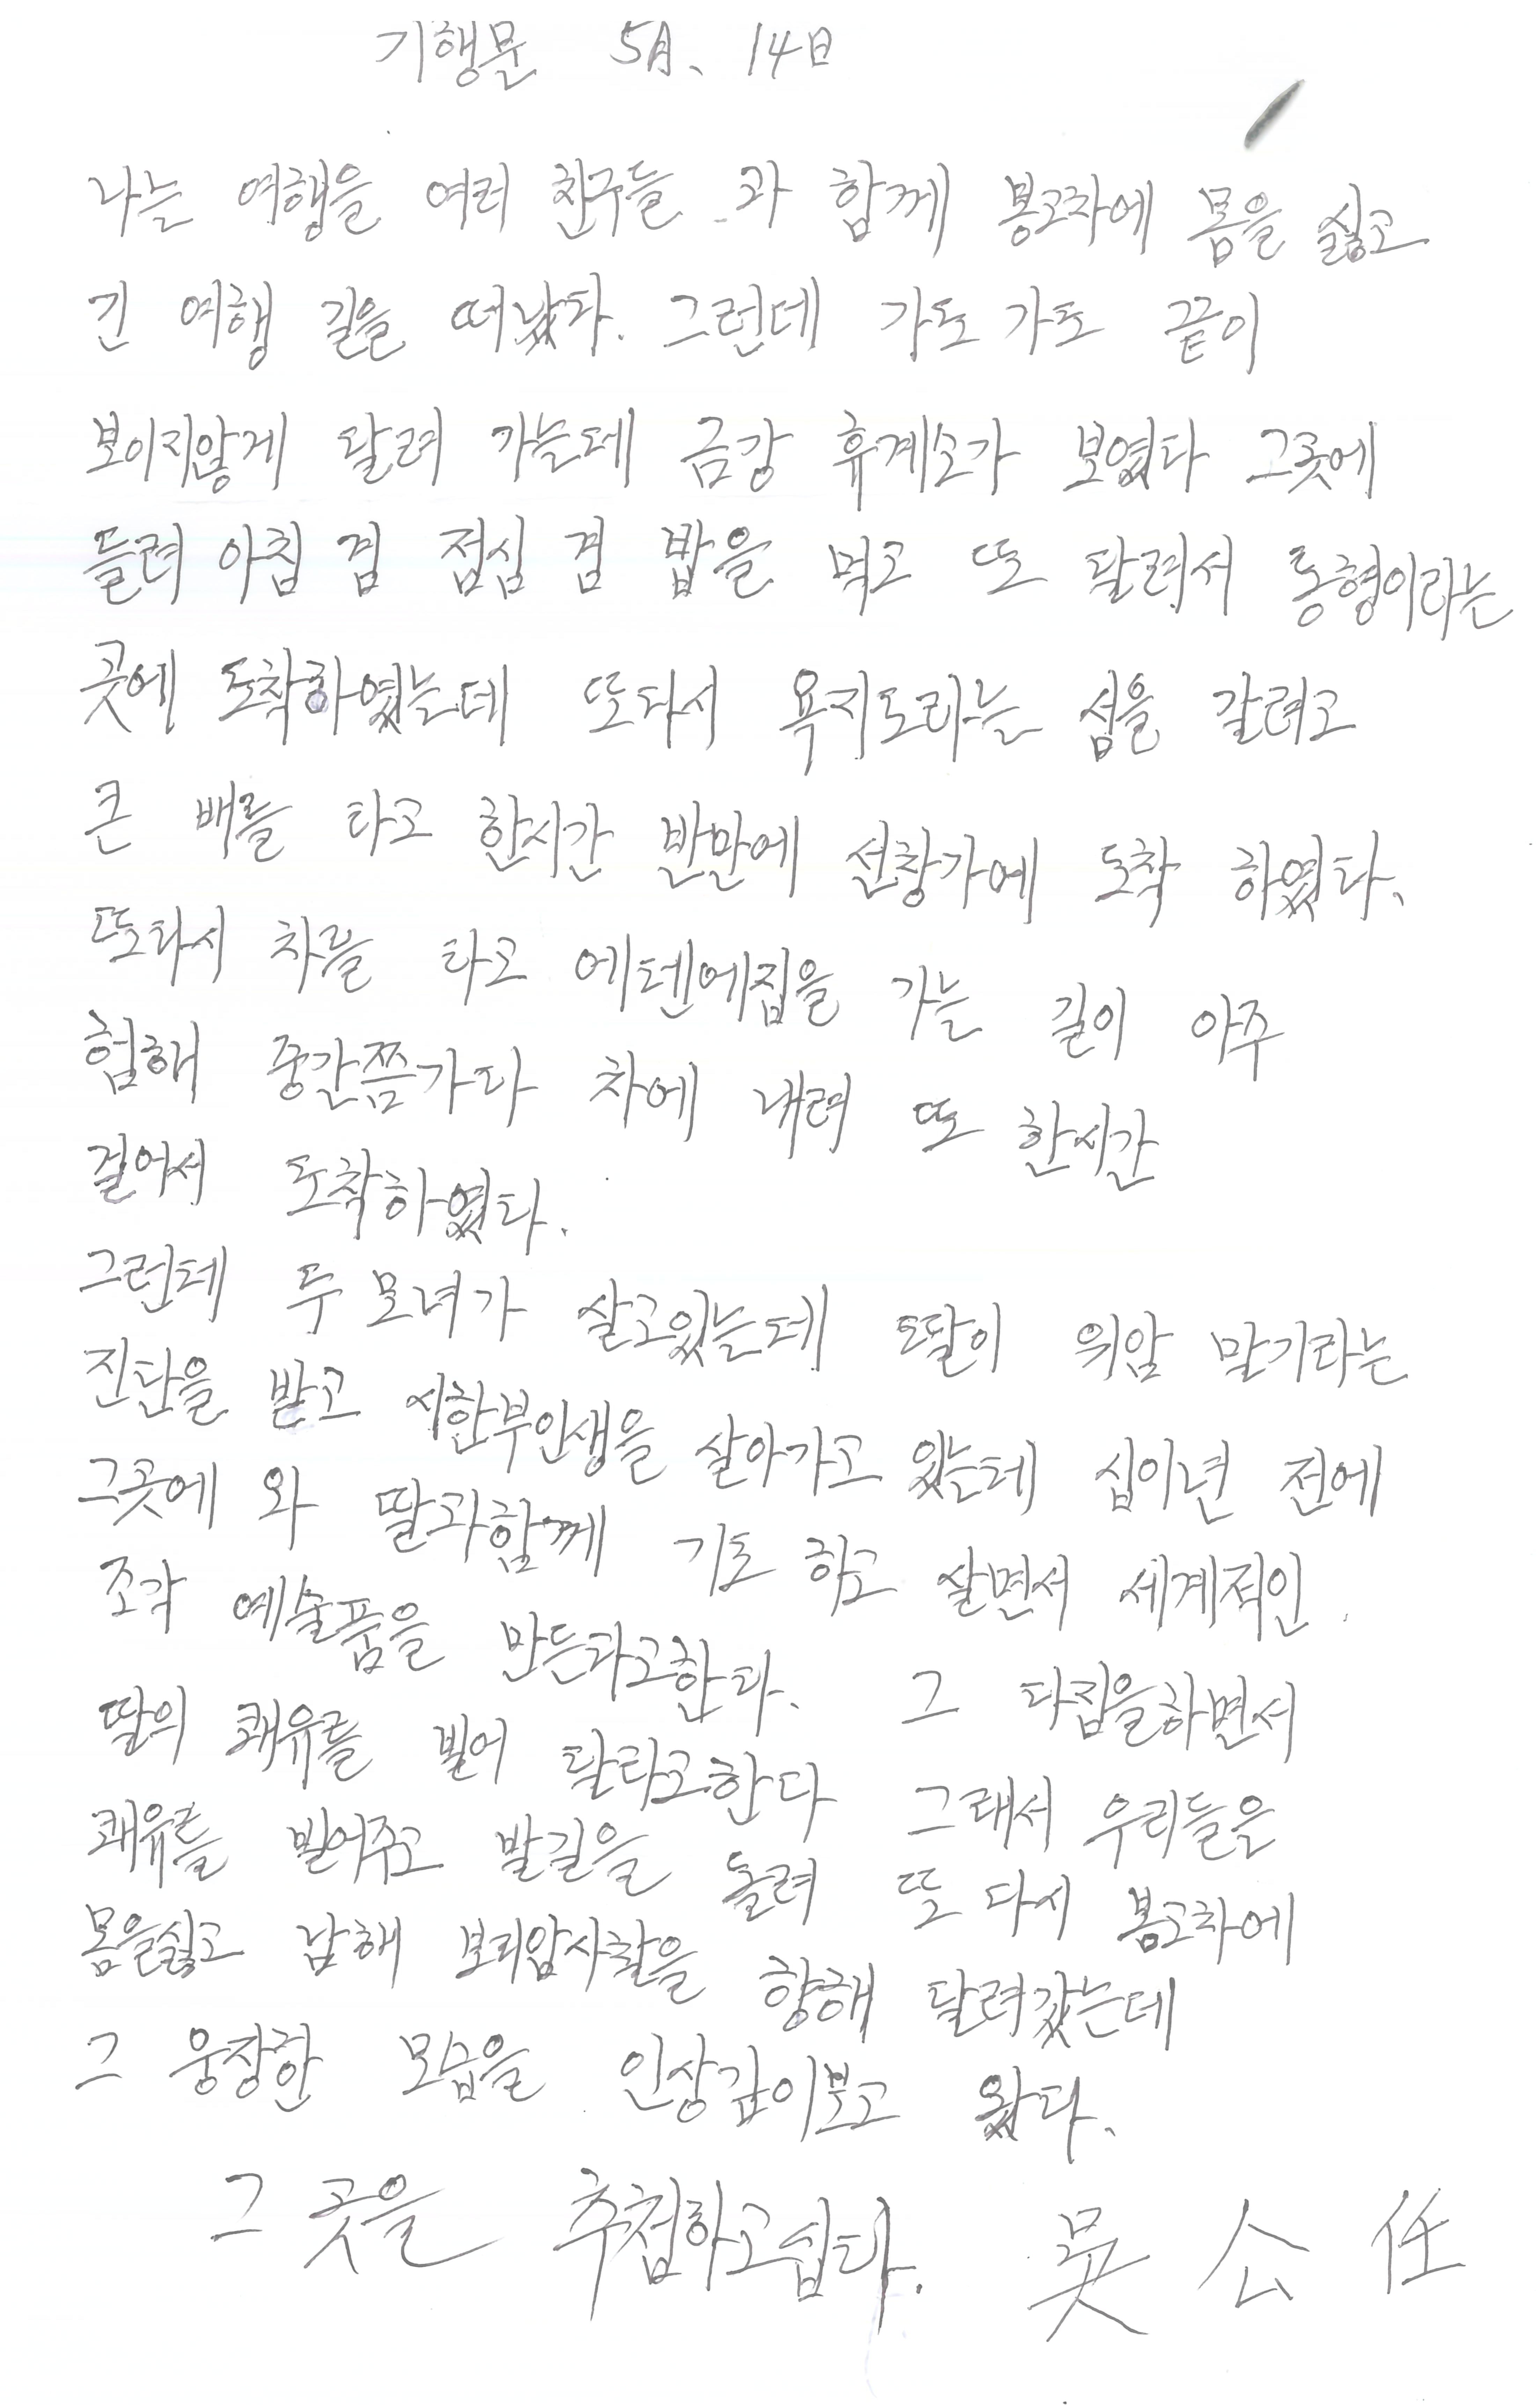 기행문 5月、14日
나는 여행을 여러 친구들 과 함께 봉고차에 몸을 싫고
긴 여행 길을 떠났다. 그런데 가도 가도 끝이
보이지않게 달려 가는데 금강 휴계소가 보였다 그곳에
들려 아침 겸 점심 겸 밥을 먹고 또 달려서 통형이라는
곳에 도착하였는데 또다시 욕지도라는 섬을 갈려고
큰 배를 타고 한시간 반만에 선창가에 도착 하였다、
또다시 차를 타고 에덴에집을 가는 길이 아주
험해 중간쯤가다 차에 내려 또 한시간
걸어서 도착하였다.
그런데 두 모녀가 살고있는데 딸이 위암 말기라는
진단을 받고 시한부인생을 살아가고 있는데 십이년 전에
그곳에 와 딸과함께 기도 하고 살면서 세계적인
조각 예술품을 만든다고한다、 그 다짐을하면서
딸의 쾌유를 빌어 달라고한다 그래서 우리들은
쾌유를 빌어주고 발길을 돌려 또 다시 봉고차에
몸을싫고 남해 보리암사찰을 향해 달려갔는데
그 웅장한 모습을 인상깊이보고 왔다、
그 곳을 추첩하고십다. 吳 公 任